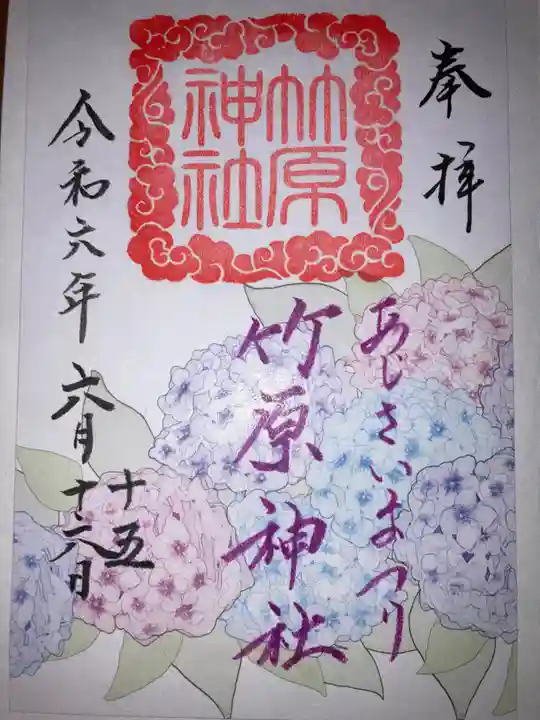 奉拝
竹原
神社
あじさいまつり
竹原神社
令和六年六月十五
十六日